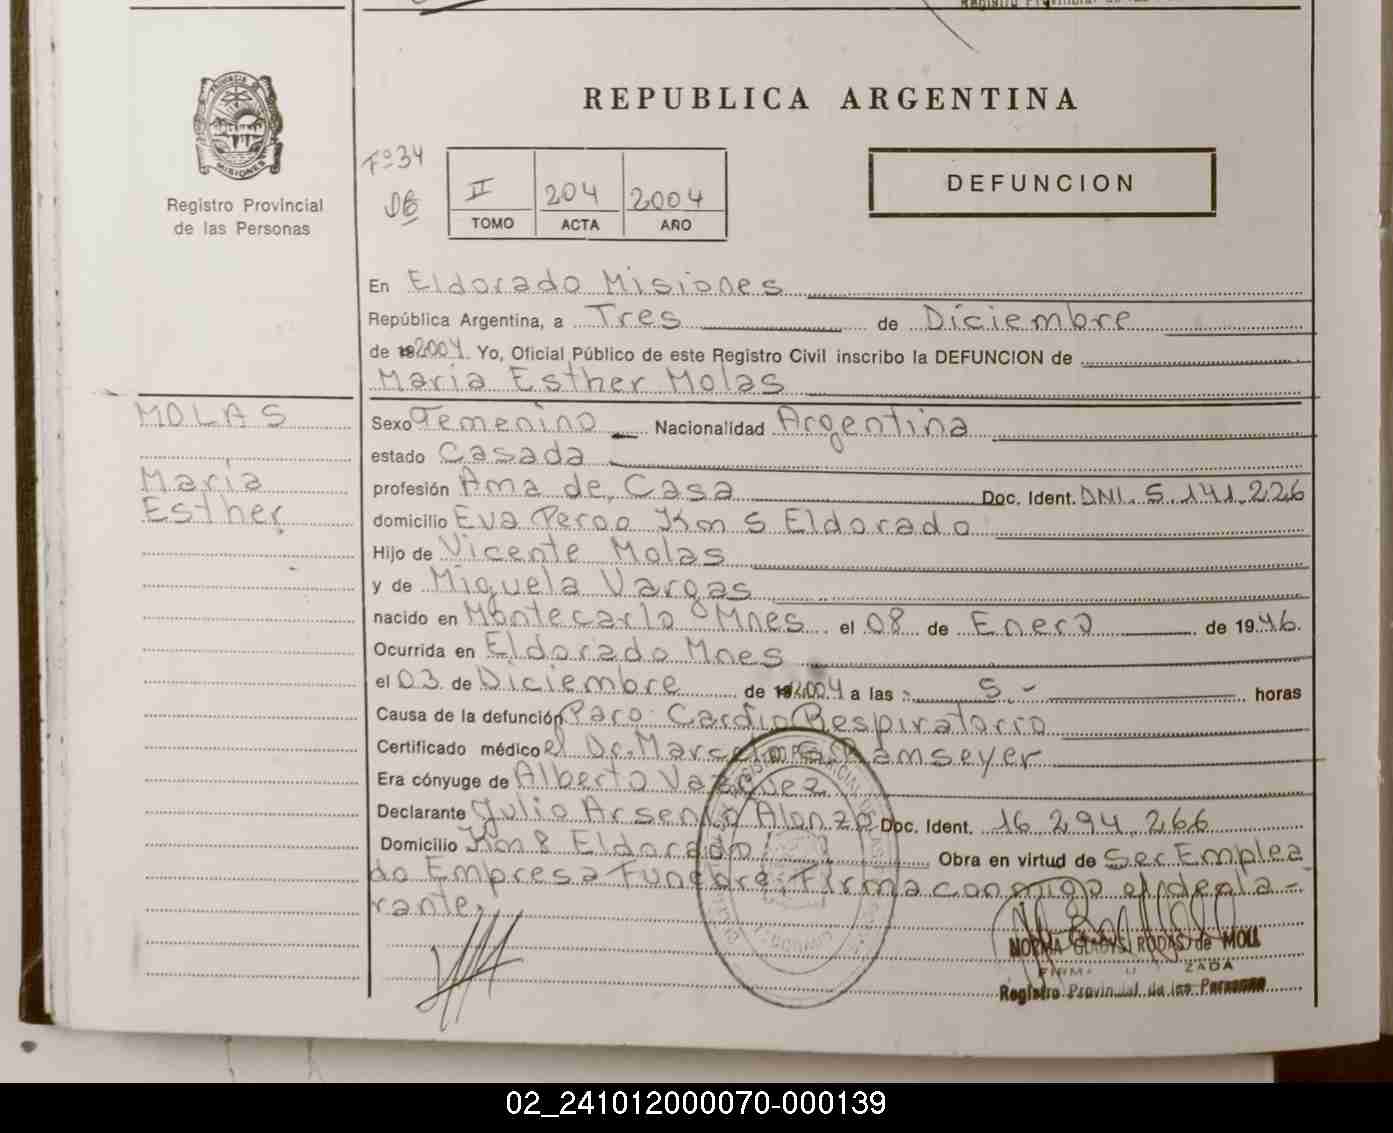 REPUBLICA ARGENTINA
PROVINCIA DE
MISIONES
Registro Provincial
de las Personas
Fº 34
II 204 2004
TOMO ACTA AÑO
DEFUNCION
En Eldorado Misiones
República Argentina, a Tres de Diciembre
de 2004. Yo, Oficial Público de este Registro Civil inscribo la DEFUNCION de
Maria Esther Molas
MOLAS
Maria
Esther
Sexo Femenino Nacionalidad Argentina
estado Casada
profesión Ama de Casa Doc. Ident. DNI. 5.141.226
domicilio Eva Peron Km 5 Eldorado
Hijo de Vicente Molas
y de Miguela Vargas
nacido en Montecarlo Mnes el 08 de Enero de 1946.
Ocurrida en Eldorado Mnes
el 03 de Diciembre de 2004 a las 5.- horas
Causa de la defunción Paro Cardio Respiratorio
Certificado médico el Dr. Marcelo G. Ramseyer
Era cónyuge de Alberto Vazquez
Declarante Julio Arsenio Alonzo Doc. Ident. 16.294.266
Domicilio Km 8 Eldorado Obra en virtud de Ser Emplea
do Empresa Funebre; Firma conmigo el decla-
rante.
NORMA GLADYS RODAS de MOLL
Registro Provincial de las Personas
02_241012000070-000139